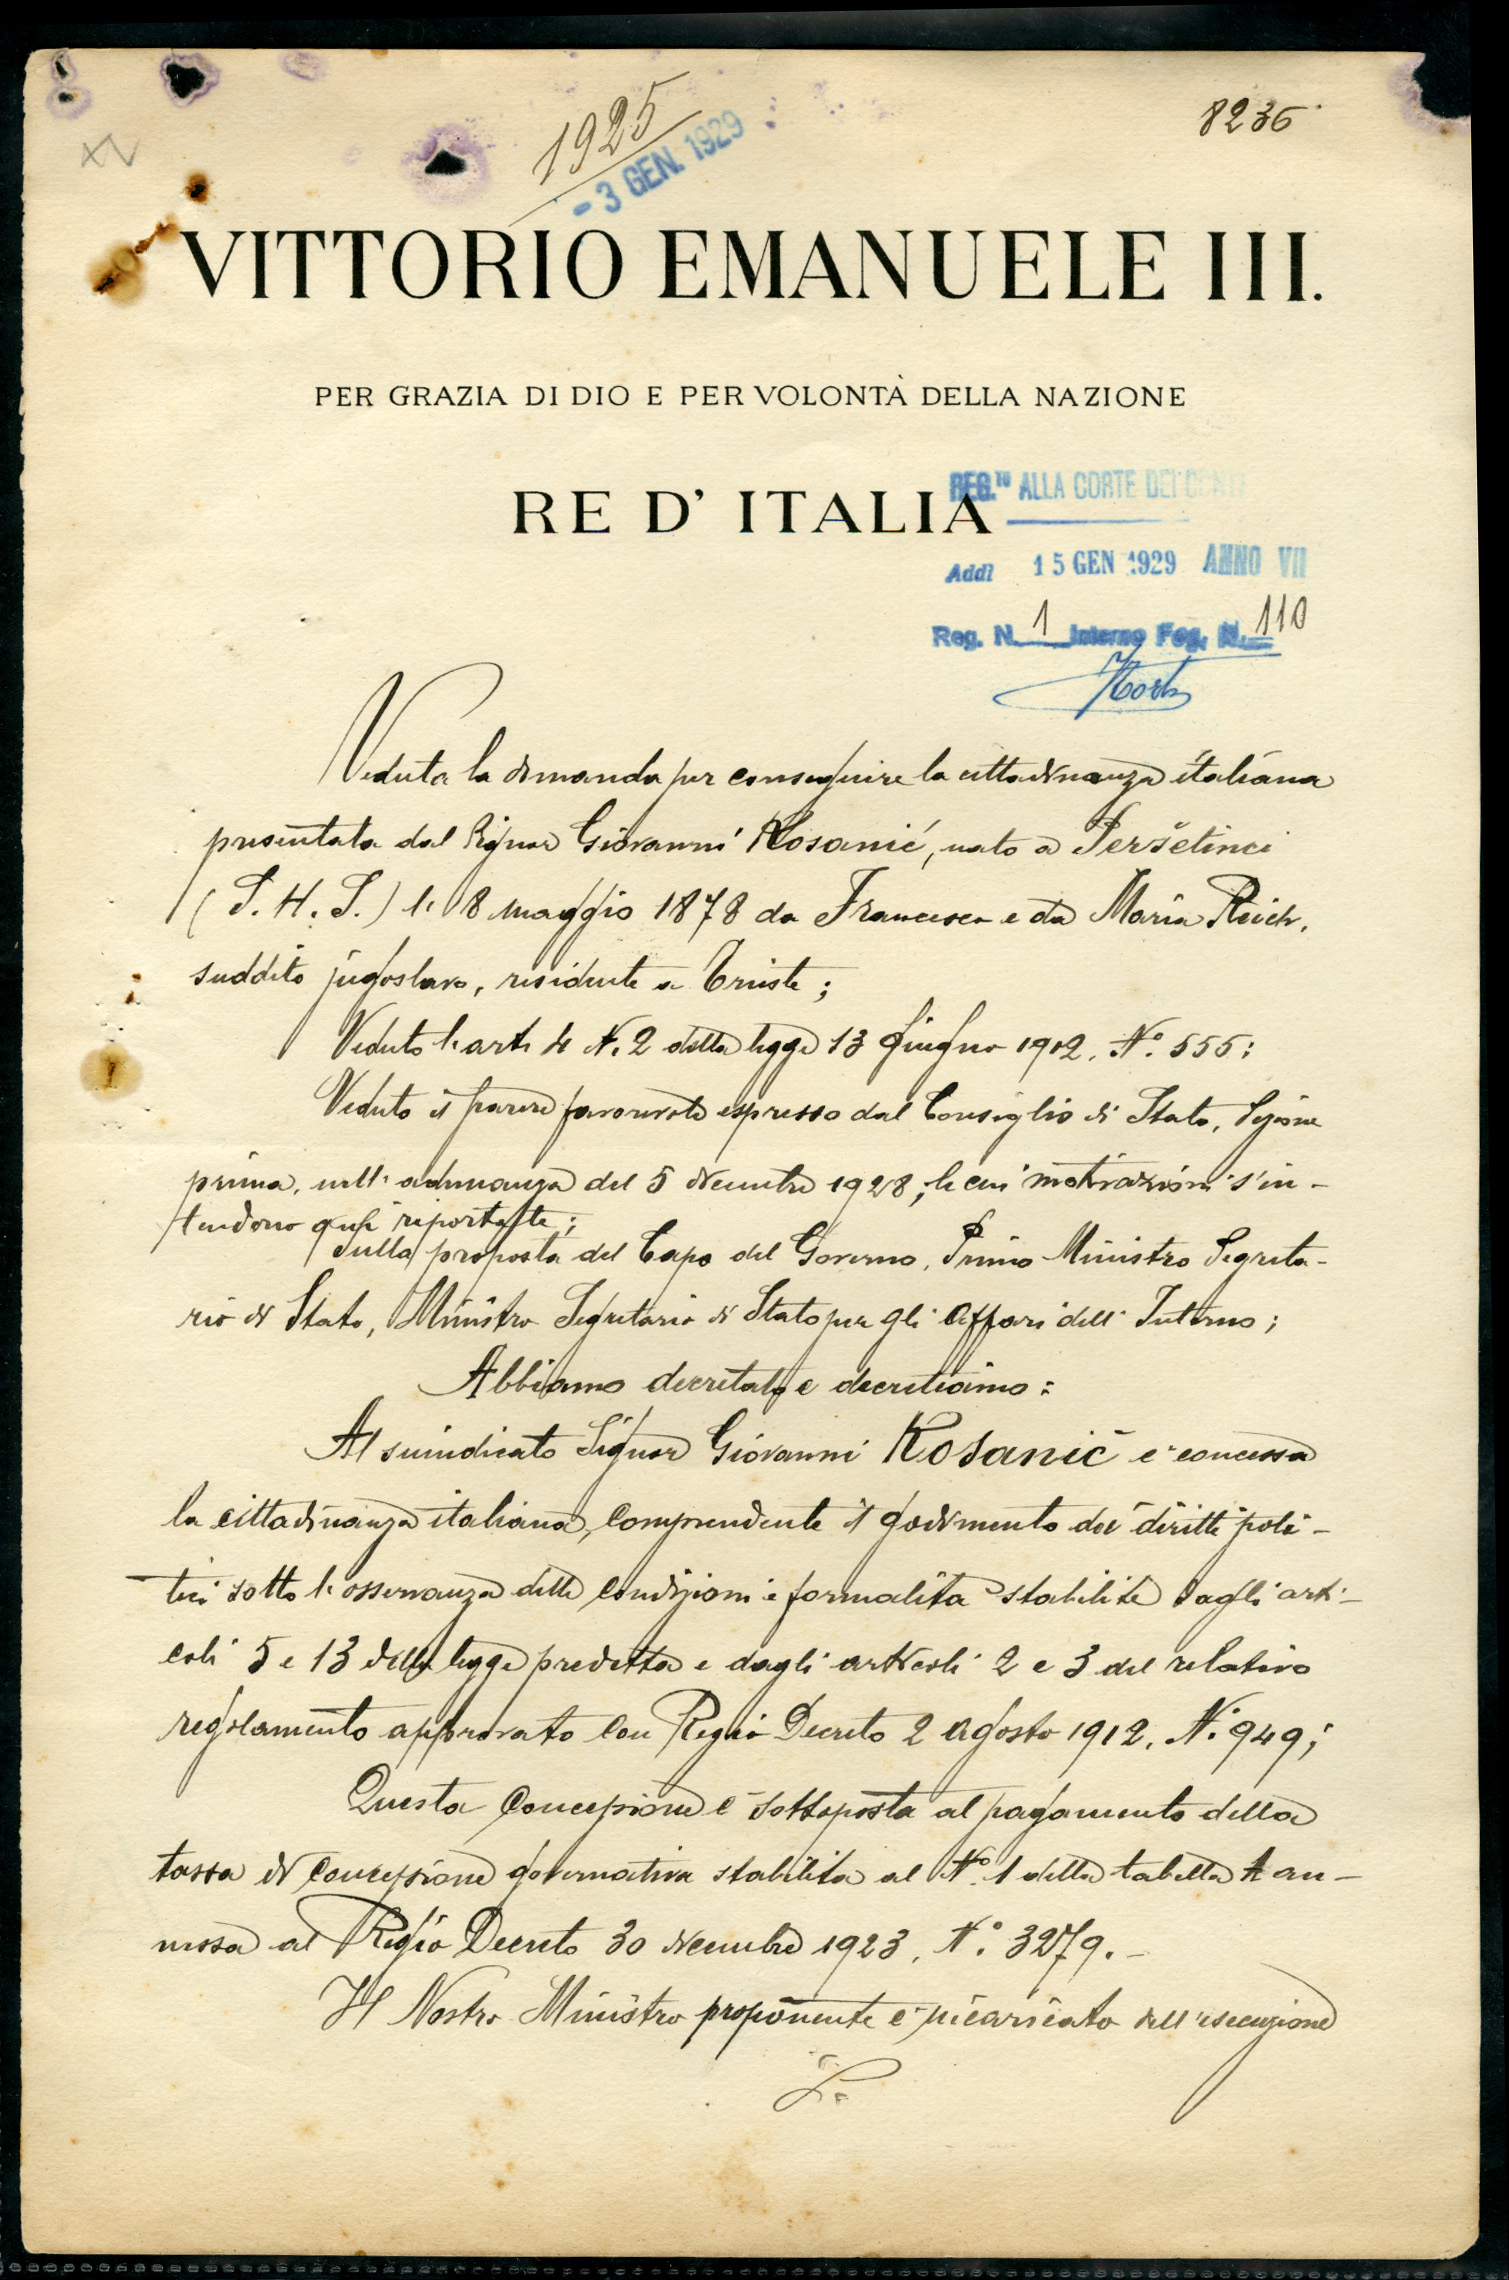 1925
8236
XV
- 3 GEN. 1929
VITTORIO EMANUELE III.
PER GRAZIA DI DIO E PER VOLONTÀ DELLA NAZIONE
RE D' ITALIA
REG.TO ALLA CORTE DEI CONTI
Addì 15 GEN 1929 ANNO VII
Reg. N. 1 Interno Fog. N. 110
Veduta la domanda per conseguire la cittadinanza italiana
presentata dal Signor Giovanni Kosanić, nato a Peršetinci
(S. H. S.) l' 8 maggio 1878 da Francesco e da Maria Reich,
suddito jugoslavo, residente a Trieste;
Veduto l'art. 4 N. 2 della legge 13 Giugno 1912, N.° 555;
Veduto il parere favorevole espresso dal Consiglio di Stato, Sezione
prima, nell' adunanza del 5 dicembre 1928, le cui motivazioni s'in-
tendono qui riportate;
Sulla proposta del Capo del Governo, Primo Ministro Segreta-
rio di Stato, Ministro Segretario di Stato per gli Affari dell' Interno;
Abbiamo decretato e decretiamo:
Al suindicato Signor Giovanni Kosanić è concessa
la cittadinanza italiana, comprendente il godimento dei diritti poli-
tici sotto l'osservanza delle condizioni e formalità stabilite dagli arti-
coli 5 e 13 della legge predetta e dagli articoli 2 e 3 del relativo
regolamento approvato con Regio Decreto 2 Agosto 1912, N. 949;
Questa Concessione è sottoposta al pagamento della
tassa di Concessione governativa stabilita al N.° 1 della tabella A an-
nessa al Regio Decreto 30 dicembre 1923, N.° 3279.-
Il Nostro Ministro proponente è incaricato dell'esecuzione